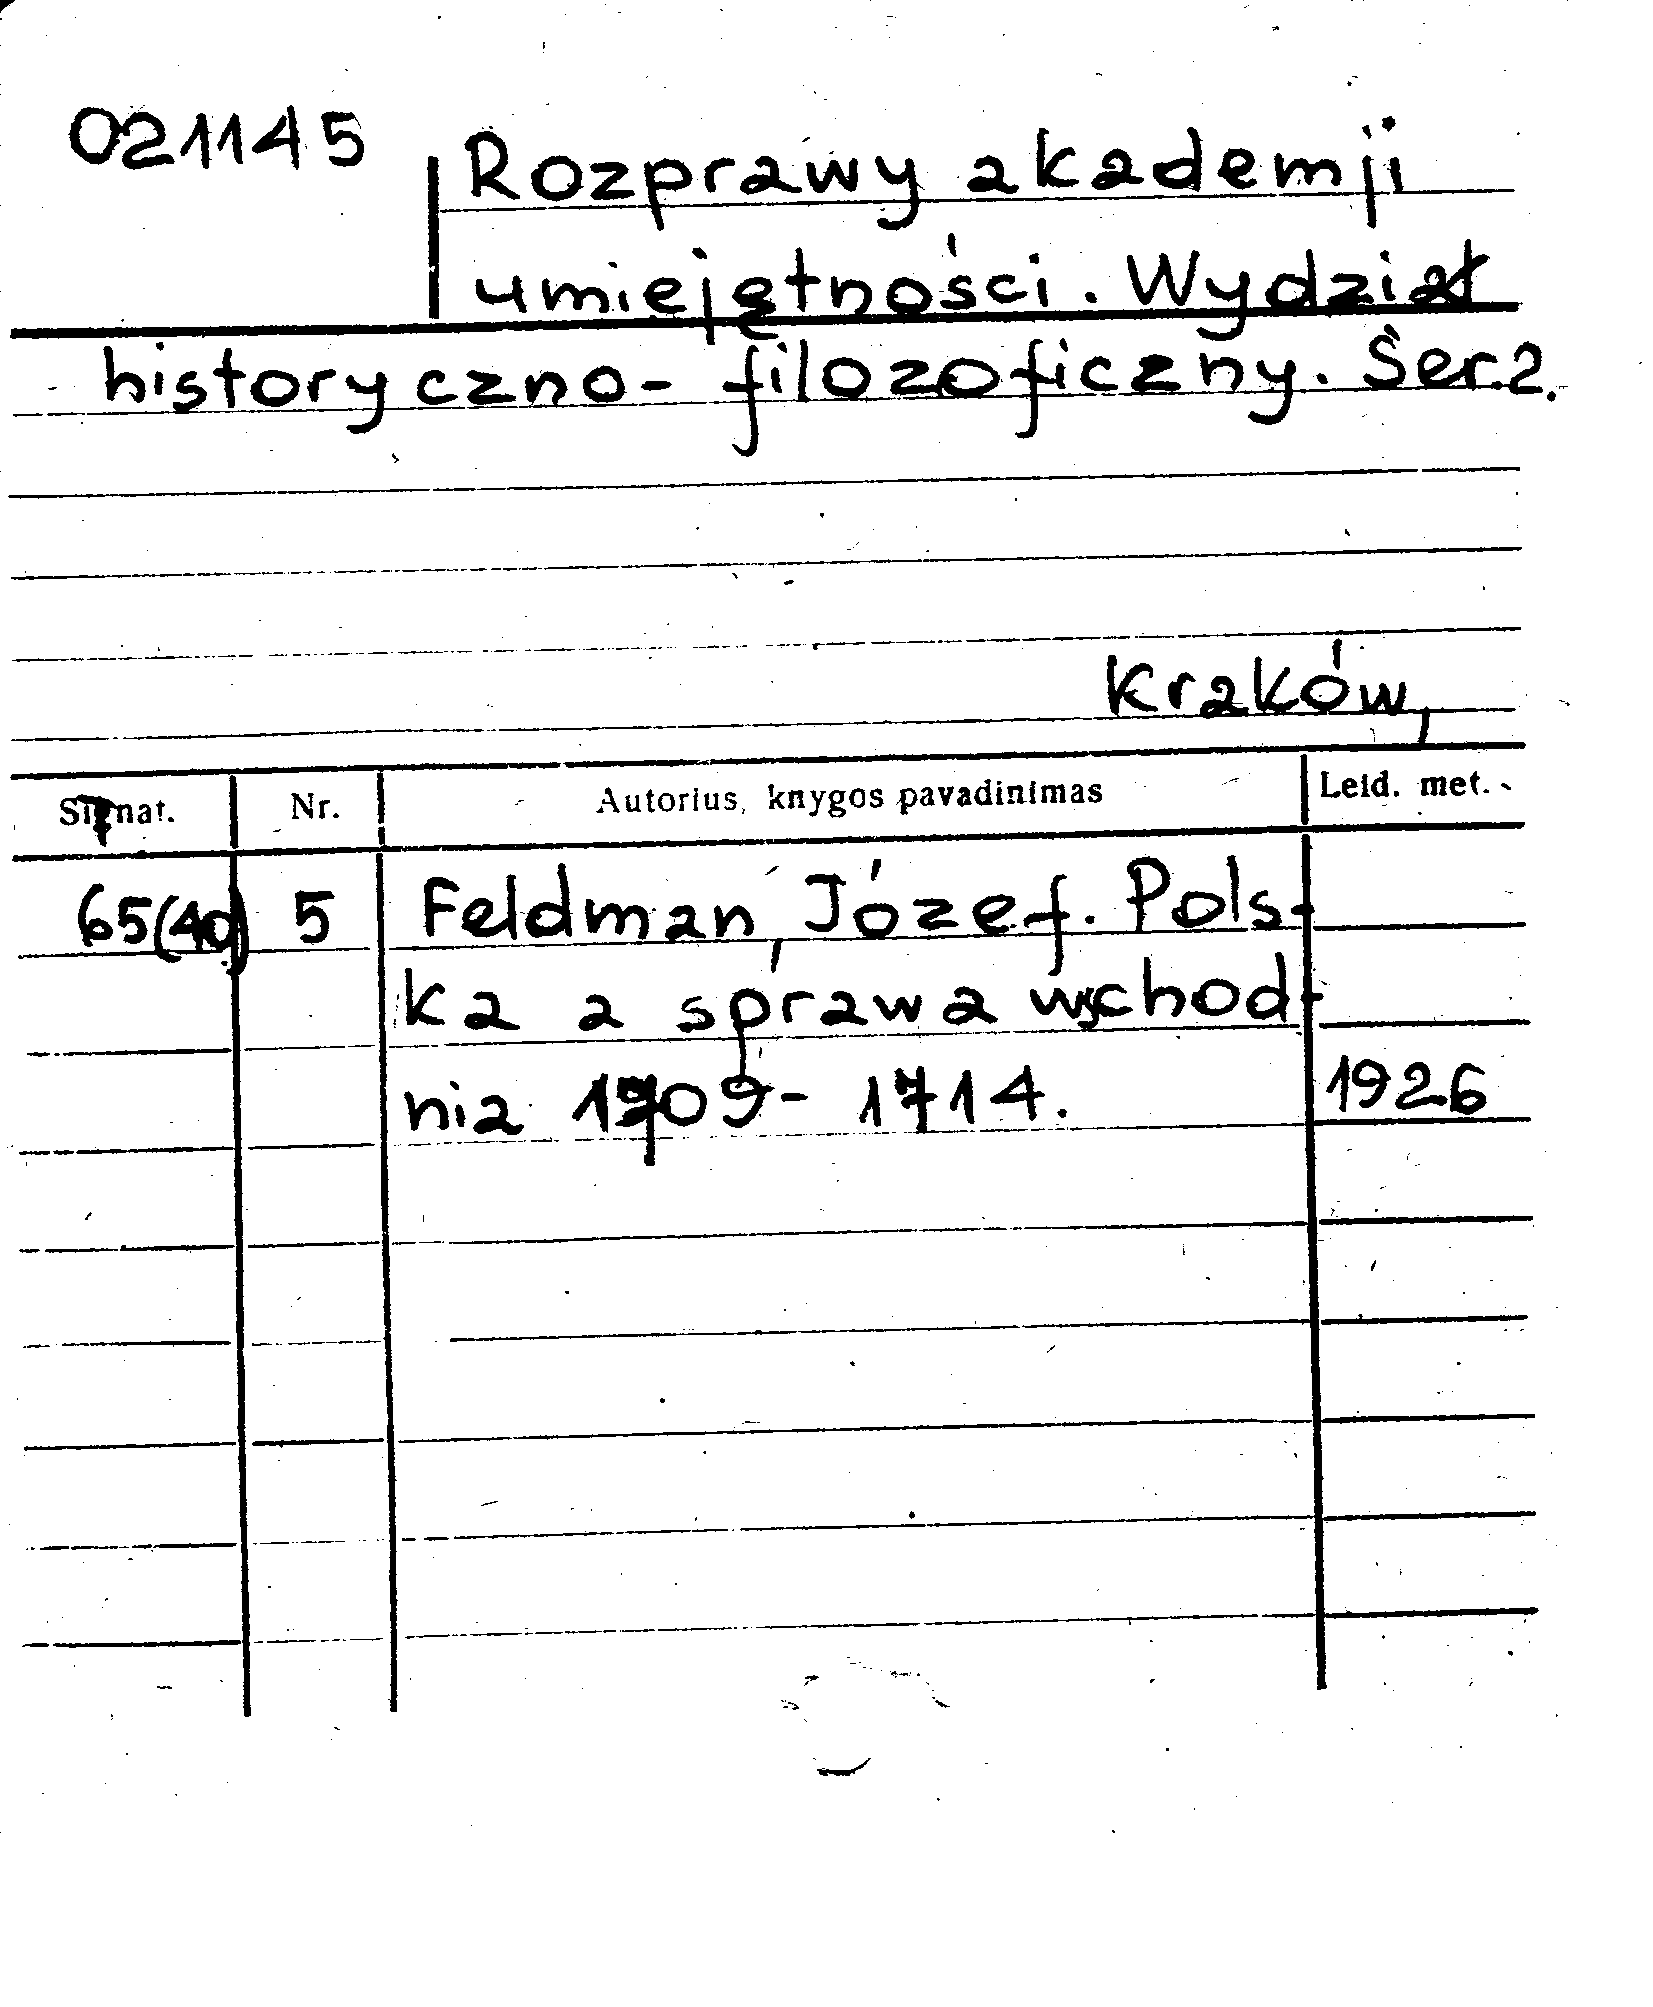 021145
Rozprawy akademji
umiejętności. Wydział
historyczno-filozoficzny. Ser.2.
Kraków,
Signat. Nr. Autorius, knygos pavadinimas Leid. met.
65(40) 5 Feldman, Józef. Pols-
ka a sprawa wschod-
nia 1709-1714. 1926